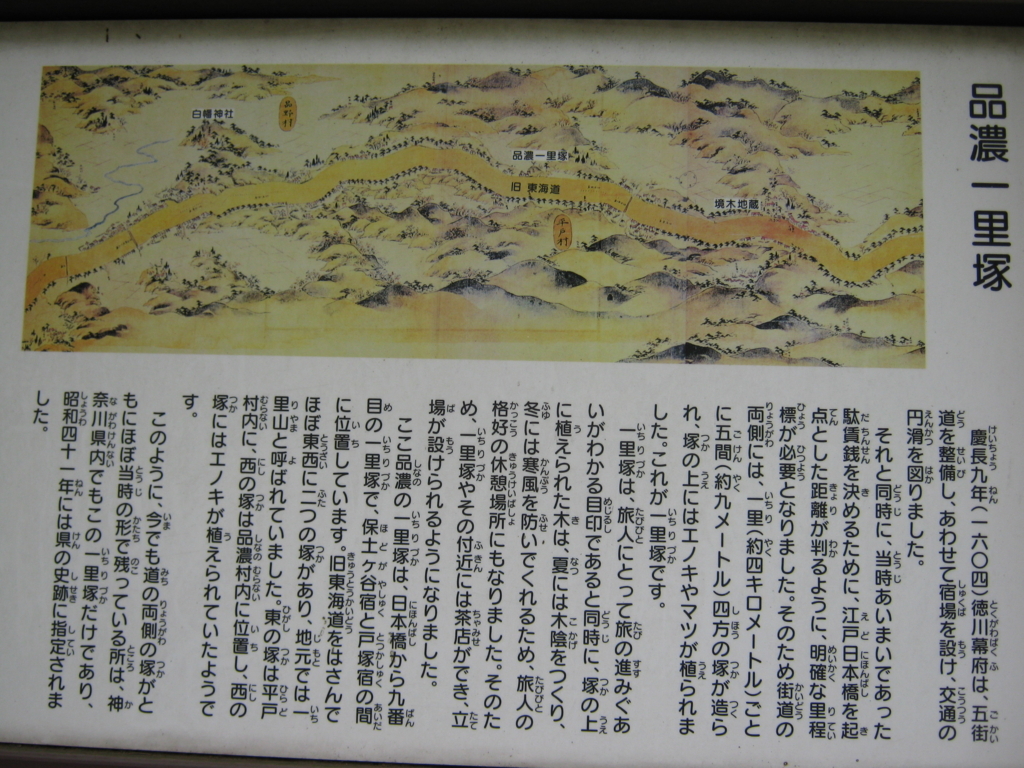 品濃一里塚
慶長九年(一六〇四)徳川幕府は、五街
道を整備し、あわせて宿場を設け、交通の
円滑を図りました。
それと同時に、当時あいまいであった
駄賃銭を決めるために、江戸日本橋を起
点とした距離が判るように、明確な里程
標が必要となりました。そのため街道の
両側には、一里(約四キロメートル)ごと
に五間(約九メートル)四方の塚が造ら
れ、塚の上にはエノキやマツが植られま
した。これが一里塚です。
一里塚は、旅人にとって旅の進みぐあ
いがわかる目印であると同時に、塚の上
に植えられた木は、夏には木陰をつくり、
冬には寒風を防いでくれるため、旅人の
格好の休憩場所にもなりました。そのた
め、一里塚やその付近には茶店ができ、立
場が設けられるようになりました。
ここ品濃の一里塚は、日本橋から九番
目の一里塚で、保土ヶ谷宿と戸塚宿の間
に位置しています。旧東海道をはさんで
ほぼ東西に二つの塚があり、地元では一
里山と呼ばれていました。東の塚は平戸
村内に、西の塚は品濃村内に位置し、西の
塚にはエノキが植えられていたようで
す。
このように、今でも道の両側の塚がと
もにほぼ当時の形で残っている所は、神
奈川県内でもこの一里塚だけであり、
昭和四十一年には県の史跡に指定されま
した。
白幡神社
品野村
品濃一里塚
旧 東海道
平戸村
境木地蔵